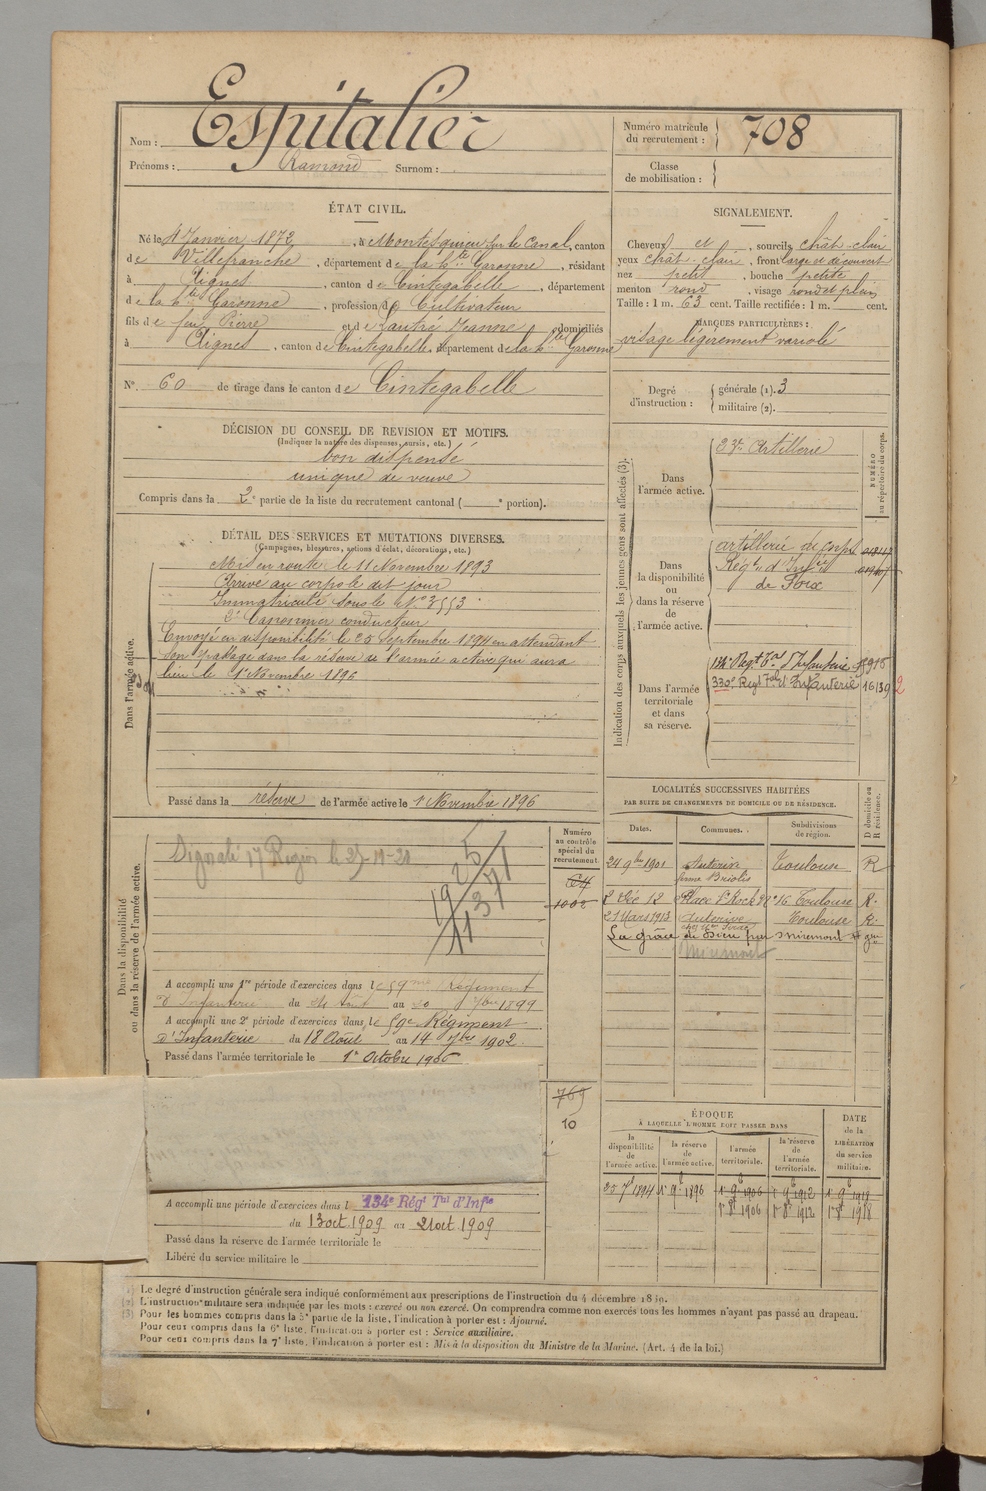 Nom : Espitalier
Prénoms : Ramond Surnom :
Numéro matricule du recrutement : 708
Classe de mobilisation :
ÉTAT CIVIL.
Né le 4 Janvier 1872, à Montesquieu sur le Canal, canton
de Villefranche, département de la hte Garonne, résidant
à Aignes, canton de Cintegabelle, département
de la hte Garonne, profession de Cultivateur
fils de feu Pierre et de Lautré Jeanne, domiciliés
à Aignes, canton de Cintegabelle, département de la hte Garonne
No. 60 de tirage dans le canton de Cintegabelle
SIGNALEMENT.
Cheveux et, sourcils chât-clair
yeux chât-clair, front large et découvert
nez petit, bouche petite
menton rond, visage rond et plein
Taille : 1 m. 63 cent. Taille rectifiée : 1 m. cent.
MARQUES PARTICULIÈRES :
visage légèrement variolé
Degré d'instruction : générale (1). 3
militaire (2).
DÉCISION DU CONSEIL DE REVISION ET MOTIFS.
(Indiquer la nature des dispenses, sursis, etc.)
bon dispensé
unique de veuve
Compris dans la 2e partie de la liste du recrutement cantonal ( e portion).
DÉTAIL DES SERVICES ET MUTATIONS DIVERSES.
(Campagnes, blessures, actions d'éclat, décorations, etc.)
Dans l'armée active.
Mis en route le 11 Novembre 1893
Arrivé au corps le dit jour
Immatriculé sous le No 3553
2e Canonnier conducteur
Envoyé en disponibilité le 25 Septembre 1894 en attendant
son passage dans la réserve de l'armée active qui aura
lieu le 1r Novembre 1896
Passé dans la réserve de l'armée active le 1 Novembre 1896
Indication des corps auxquels les jeunes gens sont affectés (3).
NUMÉRO au répertoire du corps.
Dans l'armée active.
23e Artillerie
Dans la disponibilité ou dans la réserve de l'armée active.
artillerie de corps
Régt d'Infrie
de Foix
Dans l'armée territoriale et dans sa réserve.
134e Régt Tal d'Infanterie
330e Régt Tal d'Infanterie 16139
Dans la disponibilité ou dans la réserve de l'armée active.
Numéro au contrôle spécial du recrutement
64
1002
1925
11371
A accompli une 1re période d'exercices dans le 59me régiment
d'Infanterie du au 1899
A accompli une 2e période d'exercices dans le 59e Régiment
d'Infanterie du 18 Août au 14 7bre 1902
Passé dans l'armée territoriale le 1r Octobre 1906
769
10
A accompli une période d'exercices dans l 134e Régt Tal d'Infie
du 13 oct 1909 au 21 oct 1909
Passé dans la réserve de l'armée territoriale le
Libéré du service militaire le
LOCALITÉS SUCCESSIVES HABITÉES
PAR SUITE DE CHANGEMENTS DE DOMICILE OU DE RÉSIDENCE.
Dates. Communes. Subdivisions de région. D domicile ou R résidence.
24 9bre 1901 Auterive Toulouse R
ferme Briolis
2 Déc 12 Place St Roch No 16 Toulouse R.
21 Mars 1913 Auterive Toulouse R.
La grâce de Dieu par Miremont
Miremont
ÉPOQUE
À LAQUELLE L'HOMME DOIT PASSER DANS
la disponibilité de l'armée active. la réserve de l'armée active. l'armée territoriale. la réserve de l'armée territoriale.
DATE de la LIBÉRATION du service militaire.
25 7e 1894 1r 9e 1896 1r 9e 1906 1r 9e 1912 1r 9e 1918
1r 8e 1906 1r 8e 1912 1r 8e 1918
(1) Le degré d'instruction générale sera indiqué conformément aux prescriptions de l'instruction du 4 décembre 1889.
(2) L'instruction militaire sera indiquée par les mots : exercé ou non exercé. On comprendra comme non exercés tous les hommes n'ayant pas passé au drapeau.
(3) Pour les hommes compris dans la 5e partie de la liste, l'indication à porter est : Ajourné.
Pour ceux compris dans la 6e liste, l'indication à porter est : Service auxiliaire.
Pour ceux compris dans la 7e liste, l'indication à porter est : Mis à la disposition du Ministre de la Marine. (Art. 4 de la loi.)